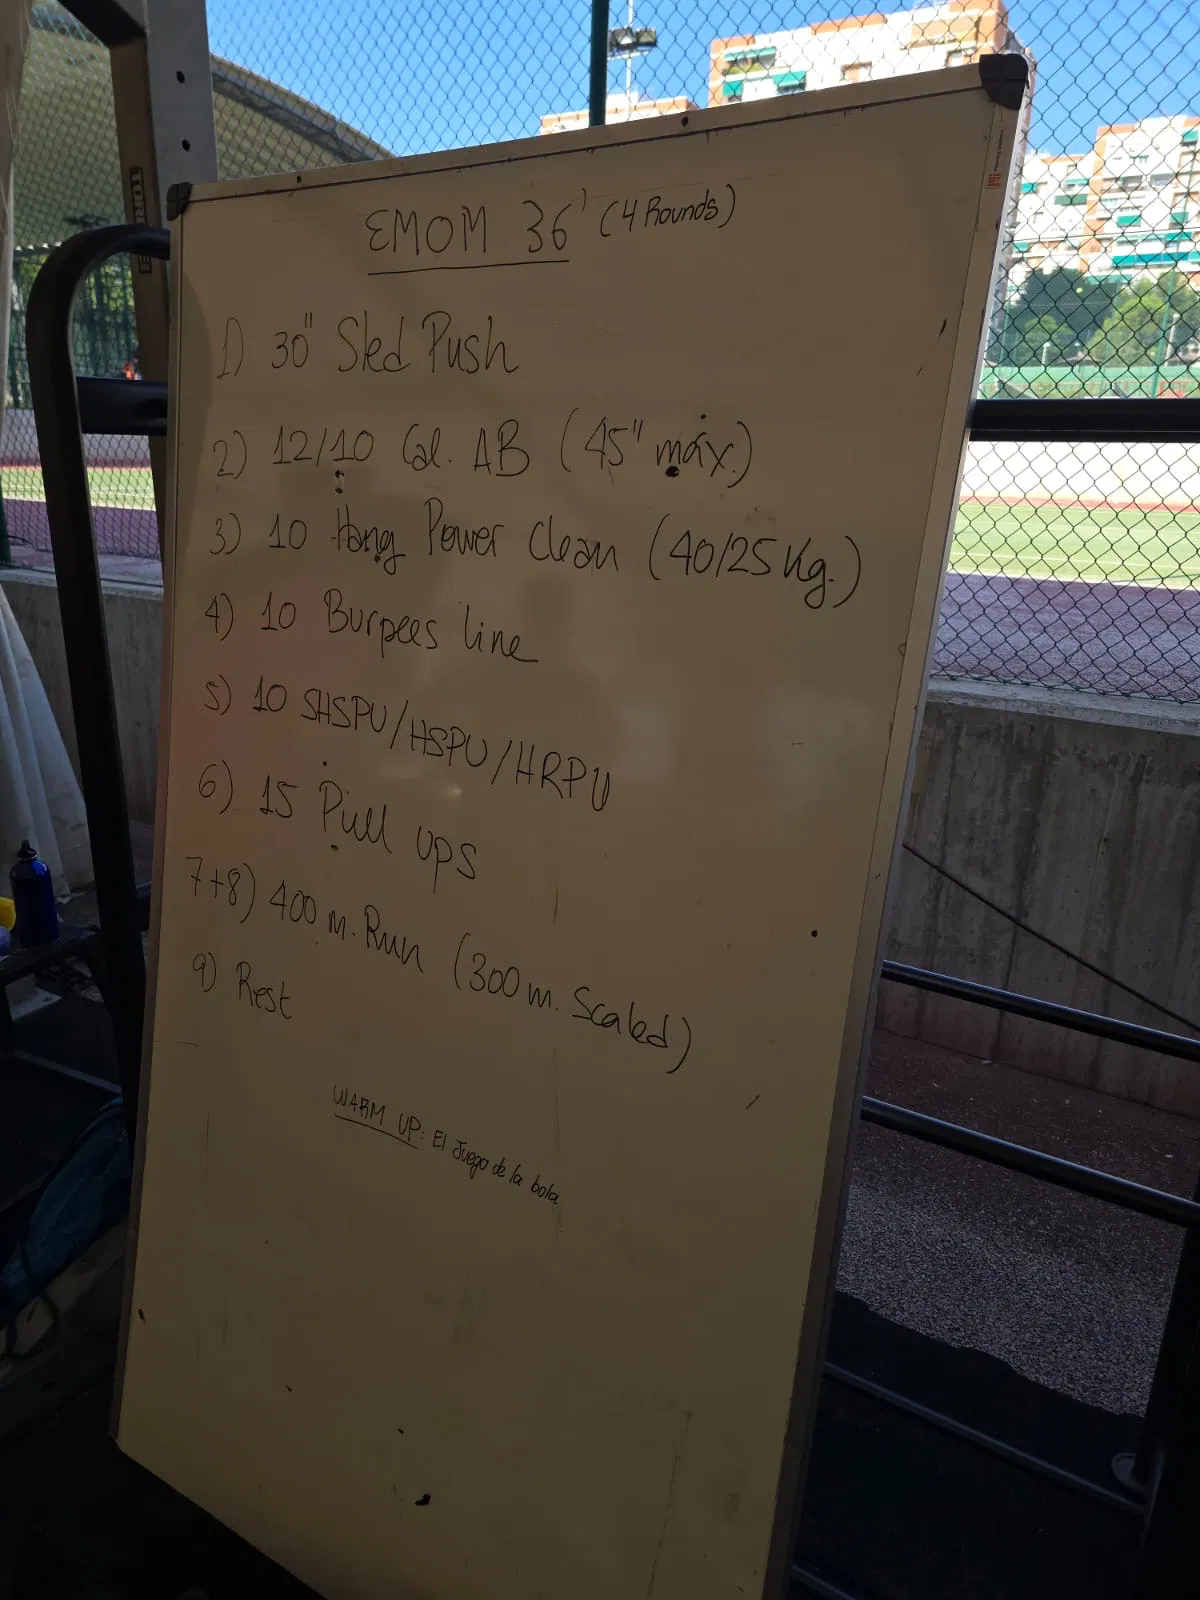 EMOM 36' (4 Rounds)
1) 30" Sled Push
2) 12/10 Cal. AB (45" máx.)
3) 10 Hang Power Clean (40/25 Kg.)
4) 10 Burpees line
5) 10 SHSPU/HSPU/HRPU
6) 15 Pull ups
7+8) 400 m. Run (300 m. Scaled)
9) Rest
WARM UP: El Juego de la bola